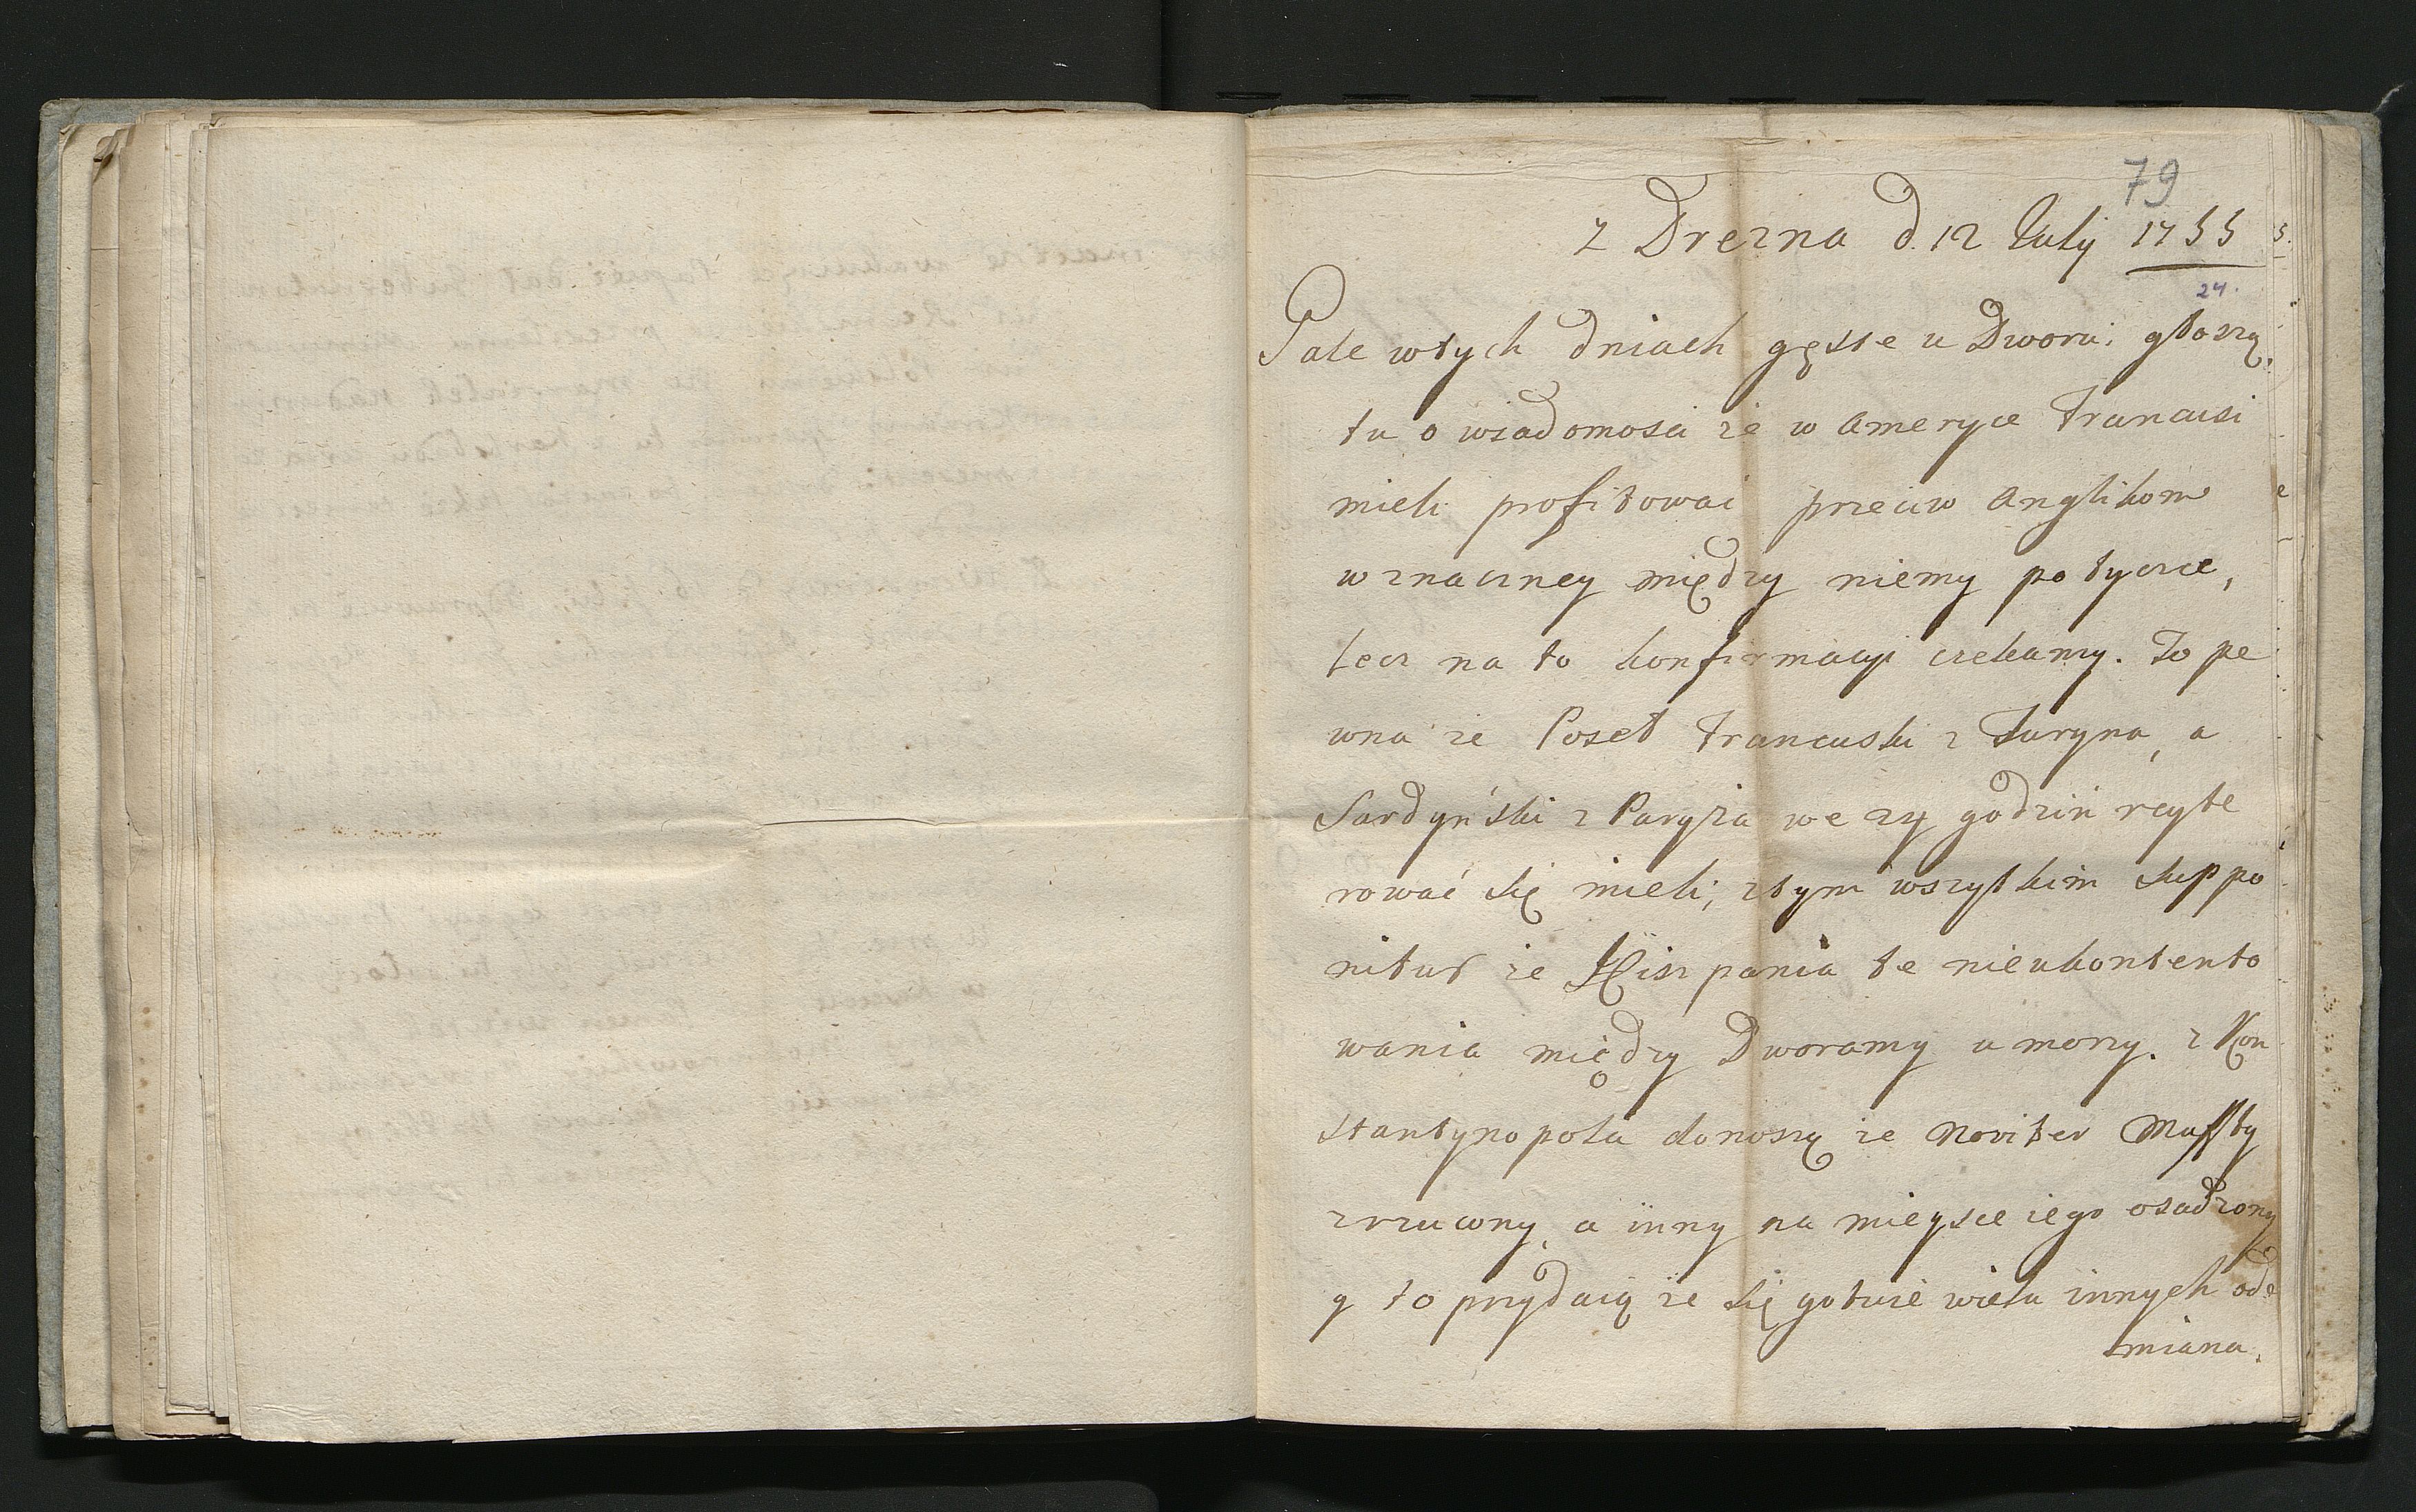 79
z Drezna d. 12 Julÿ 1755
24.
Gale w tych dniach gęste u Dworu; głoszą
tu o wiadomosci że w Ameryce Francusi
mieli profitowac przeciw Anglikom
w znaczney między niemy potyczce,
lecz na to konfirmacyi czekamy. To pe
wna że Poseł Francuski z Turyna, a
Sardyński z Paryża we 24 godzin recyte
rować się mieli; z tym wszytkim suppo
nitur że Hiszpania te nieukontento
wania między Dworamy umorzy. z Kon
stantynopola donoszą że noviter Muffty
zrzucony, a inny na mieysce iego osadzony
y to przydaią że się gotuie wielu innych ode
miana.